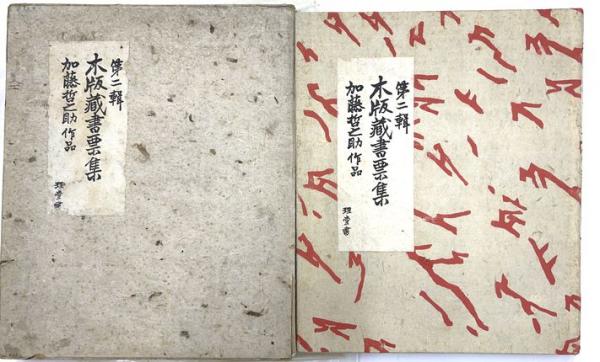 第二輯
木版藏書票集
加藤哲之助作品
理堂書
第二輯
木版藏書票集
加藤哲之助作品
理堂書